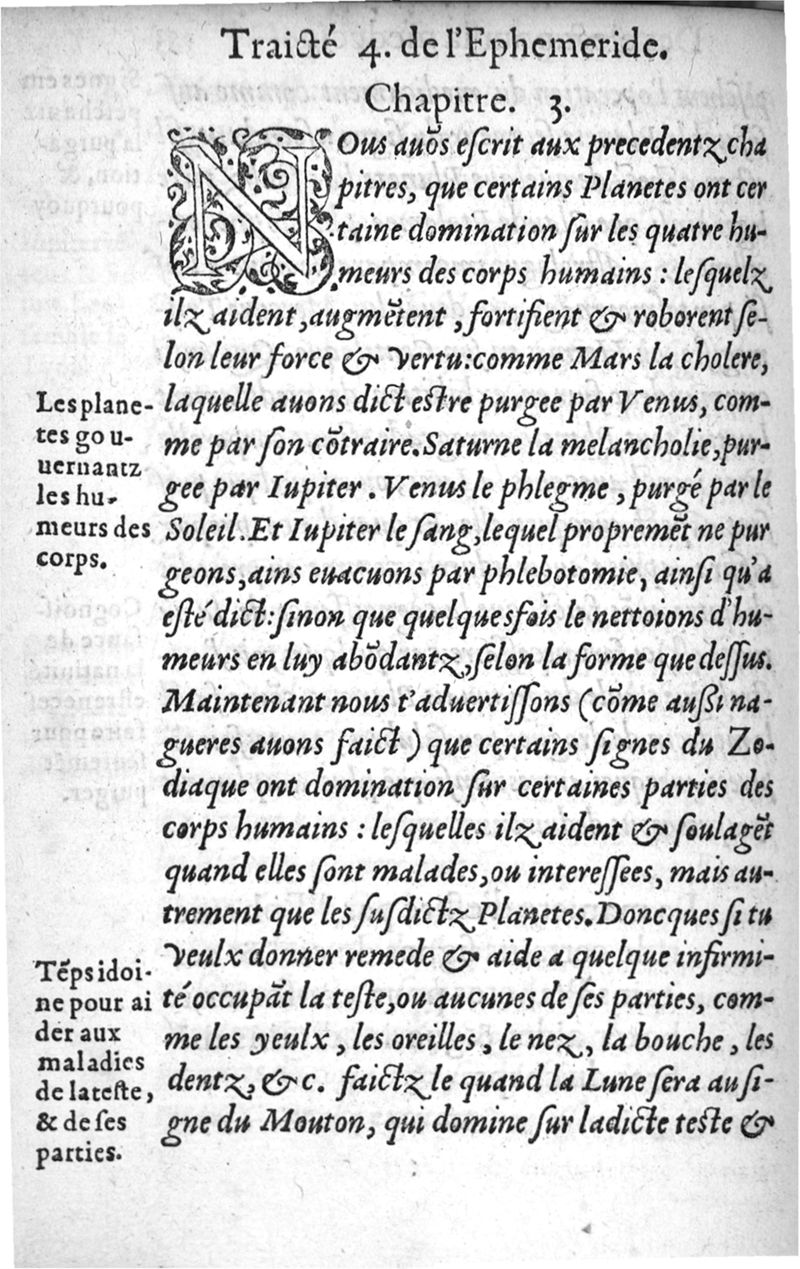 Traicté 4. de l'Ephemeride.
Chapitre. 3.
NOus auõs eſcrit aux precedentz cha
pitres, que certains Planetes ont cer
taine domination ſur les quatre hu-
meurs des corps humains : leſquelz
ilz aident, augmẽtent, fortifient & roborent ſe-
lon leur force & vertu: comme Mars la cholere,
laquelle auons dict eſtre purgee par Venus, com-
me par ſon cõtraire. Saturne la melancholie, pur-
gee par Iupiter. Venus le phlegme, purgé par le
Soleil. Et Iupiter le ſang, lequel propremẽt ne pur
geons, ains euacuons par phlebotomie, ainſi qu'a
eſté dict: ſinon que quelquesfois le nettoions d'hu-
meurs en luy abõdantz, ſelon la forme que deſſus.
Maintenant nous t'aduertiſſons (cõme auſſi na-
gueres auons faict) que certains ſignes du Zo-
diaque ont domination ſur certaines parties des
corps humains : leſquelles ilz aident & ſoulagẽt
quand elles ſont malades, ou intereſſees, mais au-
trement que les ſuſdictz Planetes. Doncques ſi tu
veulx donner remede & aide a quelque infirmi-
té occupãt la teſte, ou aucunes de ſes parties, com-
me les yeulx, les oreilles, le nez, la bouche, les
dentz, &c. faictz le quand la Lune ſera au ſi-
gne du Mouton, qui domine ſur ladicte teſte &
Les plane-
tes gou-
uernantz
les hu-
meurs des
corps.
Tẽps idoi-
ne pour ai
der aux
maladies
de la teſte,
& de ſes
parties.